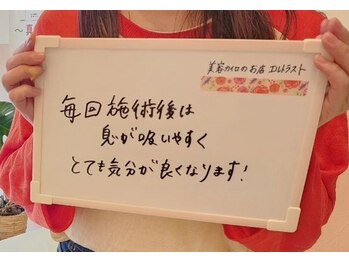 美容カイロのお店 エルトラスト
毎回施術後は
息が吸いやすく
とても気分が良くなります!